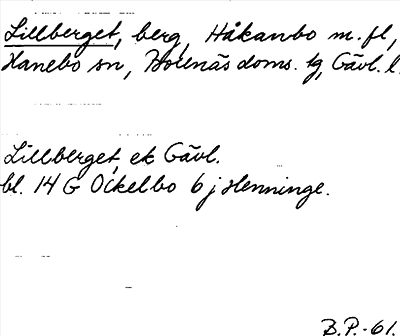 Lillberget, berg, Håkanbo m. fl,
Hanebo sn, Bollnäs doms. tg, Gävl. l.
Lillberget, ek Gävl.
bl. 14 G Ockelbo 6 j Henninge.
B.P.-61.